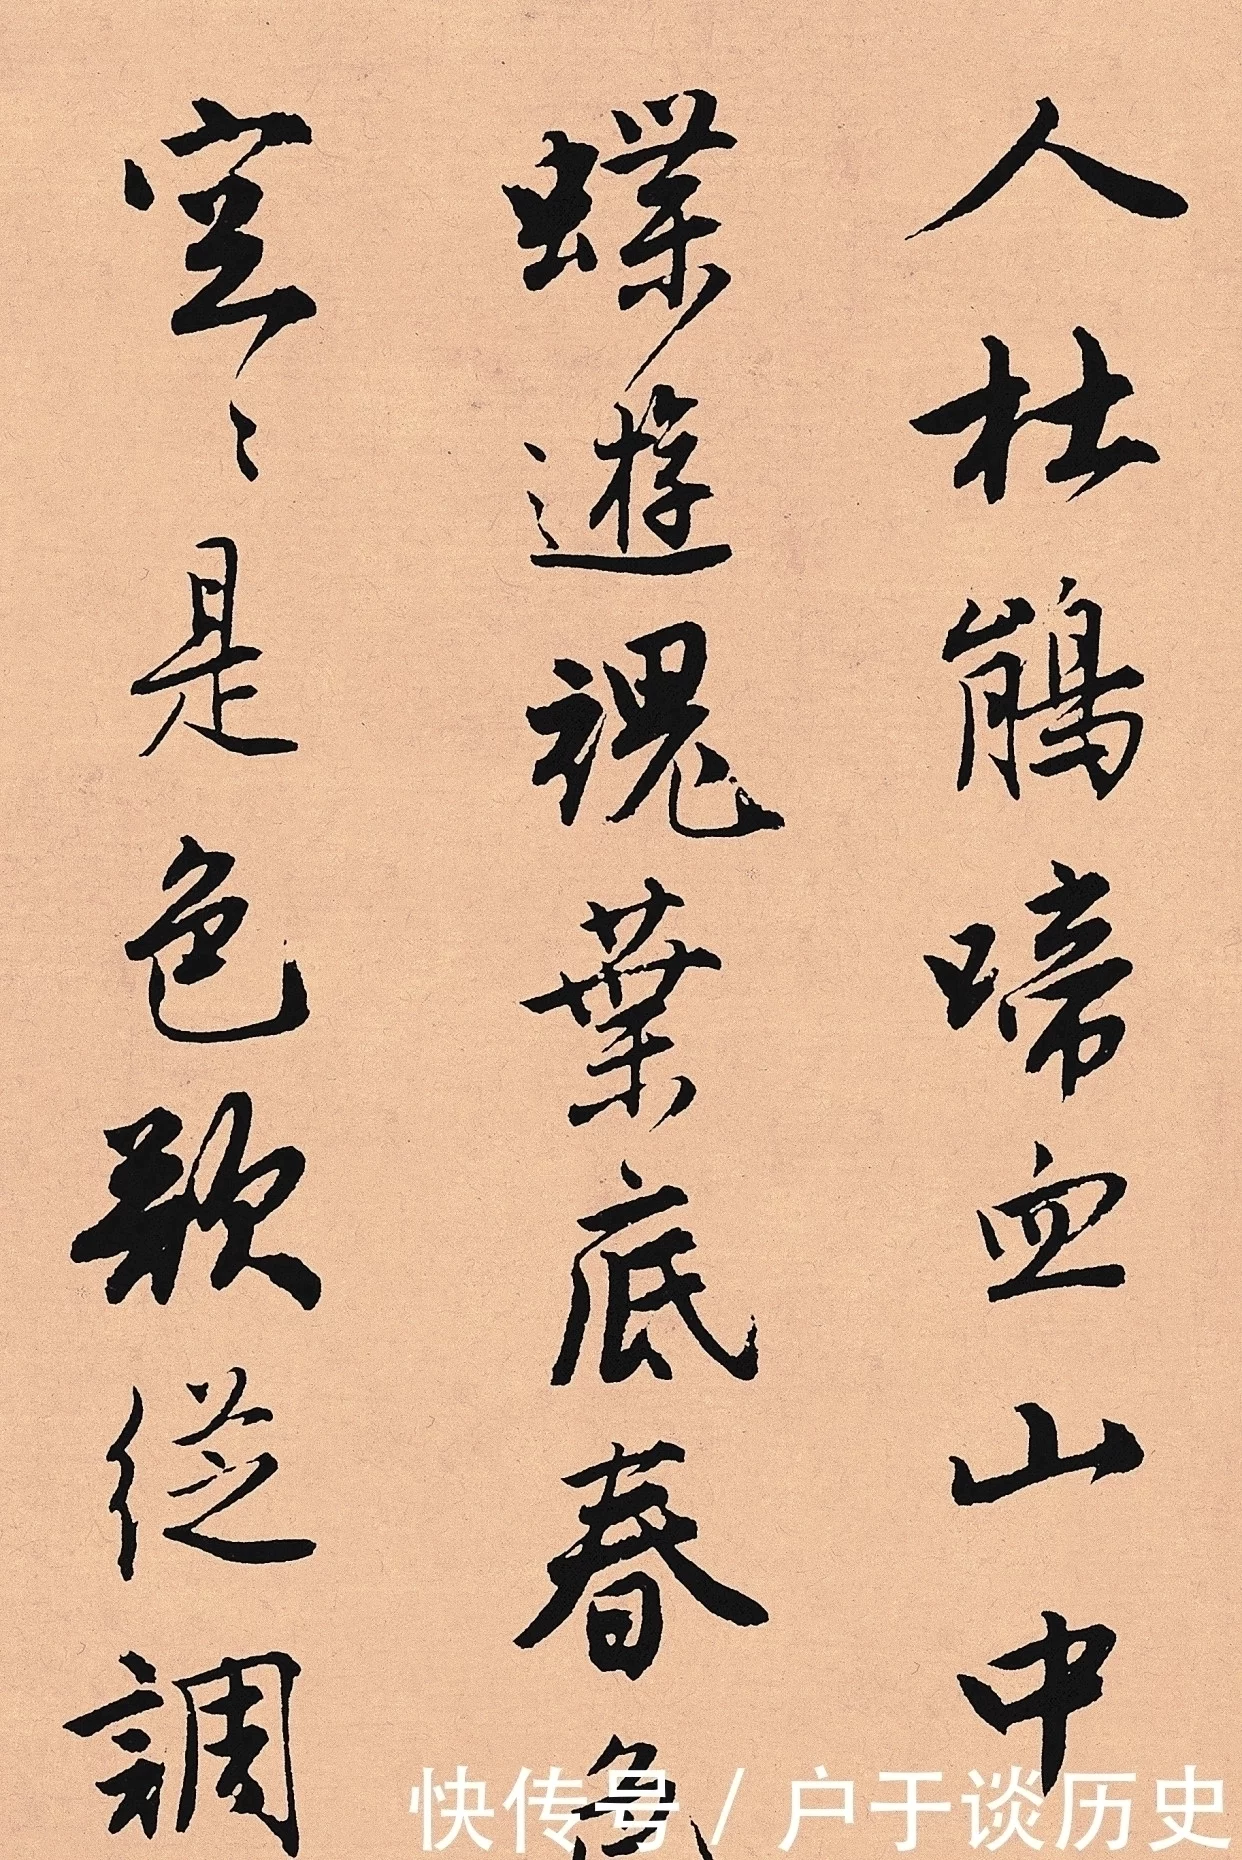 人杜鵑啼血山中
蝶遊魂葉底春
空〻是色歌從調
快传号/户于谈历史